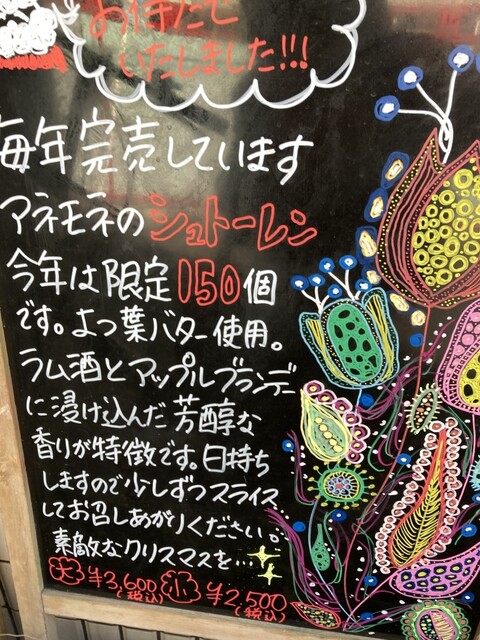 お待たせ
いたしました!!!
毎年完売しています
アネモネのシュトーレン
今年は限定150個
です。よつ葉バター使用。
ラム酒とアップルブランデー
に浸け込んだ芳醇な
香りが特徴です。日持ち
しますので少しずつスライス
してお召しあがりください。
素敵なクリスマスを…
大 ¥3,600(税込) 小 ¥2,500(税込)